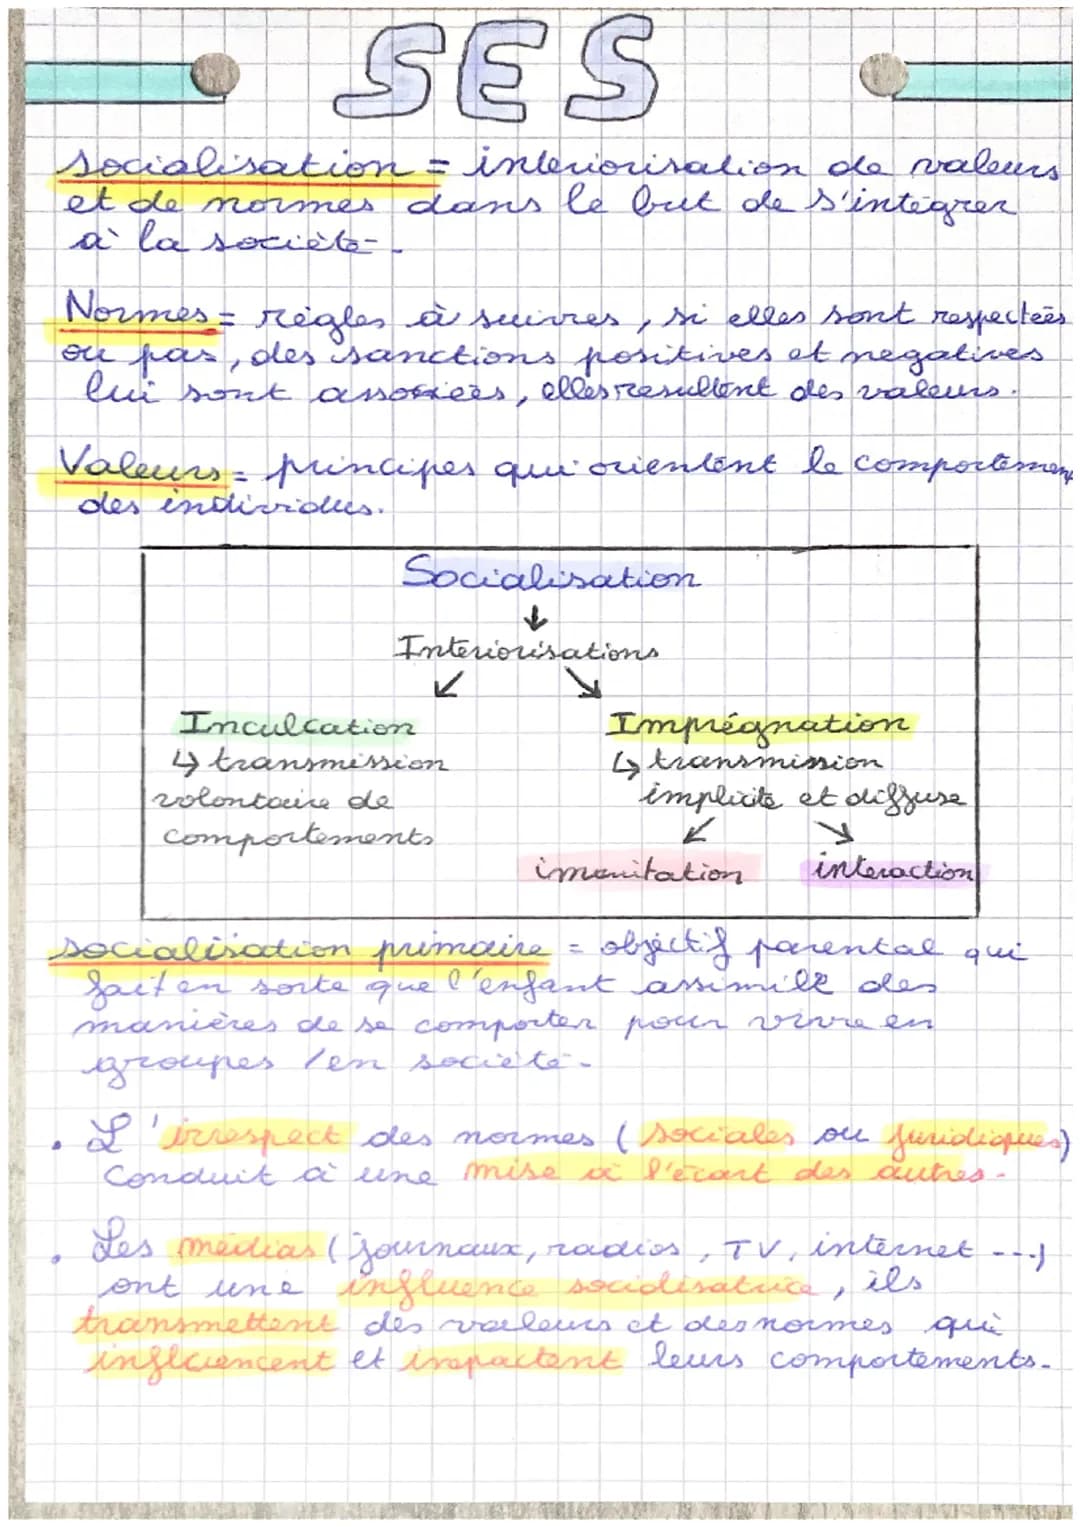 SES
socialisation = interiorisation de valeurs
et de normes dans le but de s'integrer
à la sociéte.
Normes = règles à suivres, si elles sont respectées
ou pas, des sanctions positives et negatives
lui sont associées, elles resultent des valeurs.
Valeurs = principes qui orientent le comportement
des individus.
Socialisation
↓
Interiorisations
↙ ↘
Inculcation
Imprégnation
↳ transmission
volontaire de
comportements
↳ transmission
implicite et diffuse
↙ ↘
imanitation interaction
socialisation primaire = objectif parental qui
fait en sorte que l'enfant assimile des
manières de se comporter pour vivre en
groupes / en sociéte.
• L'irrespect des normes (sociales ou juridiques)
Conduit à une mise à l'écart des autres.
• Les médias (journaux, radios, TV, internet ...)
ont une influence socialisatrice, ils
transmettent des valeurs et des normes qui
influencent et impactent leurs comportements.